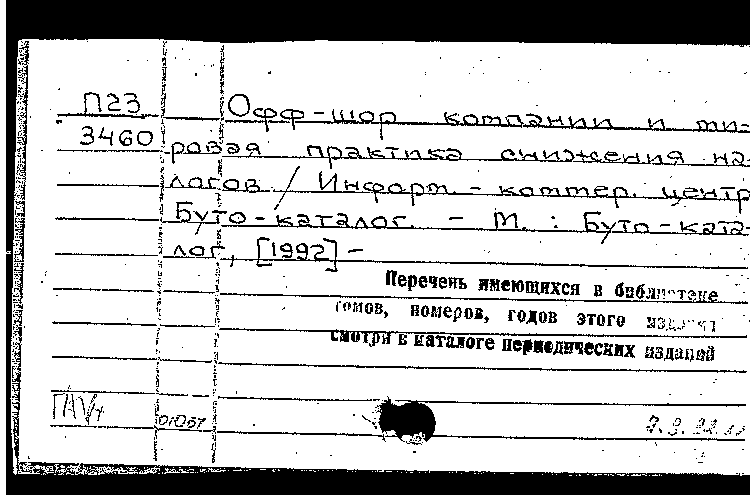 П23
3460
Офф-шор компании и ми-
ровая практика снижения на-
логов / Информ.-коммер. центр
Буто-каталог. - М. : Буто-ката-
лог, [1992] -
Перечень имеющихся в библиотеке
томов, номеров, годов этого издания
смотри в каталоге периодических изданий